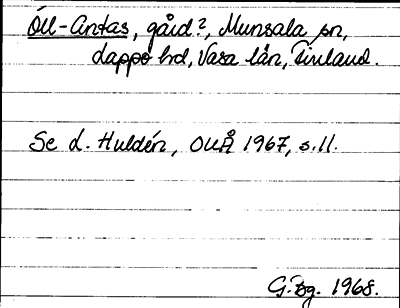 Öll-Antas, gård?, Munsala sn,
Lappo hd, Vasa län, Finland.
Se L. Huldén, OUÅ 1967, s. 11.
G. Bg. 1968.